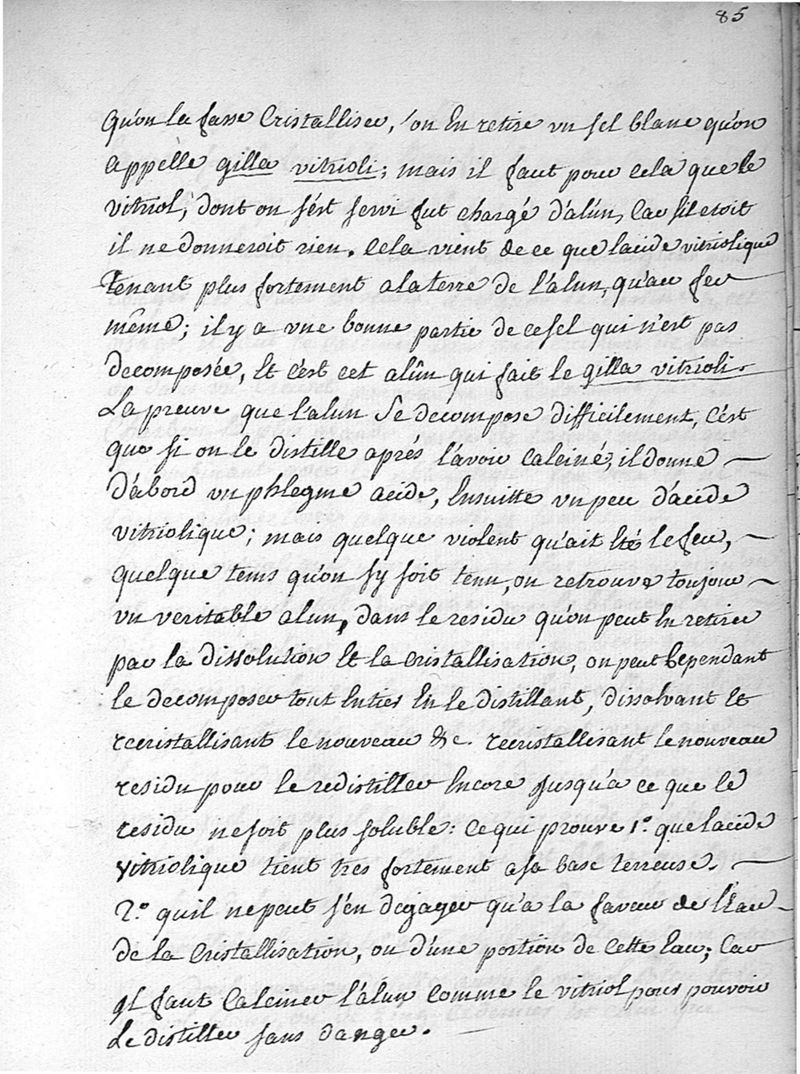 85
qu'on la fasse Cristalliser, on En retire un sel blanc qu'on
appèlle gilla vitrioli; mais il faut pour cela que le
vitriol, dont on s'ést servi fut chargé d'alùn, Car s'il etoit
il ne donneroit rien. Cela vient de ce que lacide vitriolique
Tenant plus fortement a la terre de l'alun, qu'au fer
même; il y a une bonne partie de ce sel qui n'est pas
decomposée, Et c'est cet alûn qui fait le gilla vitrioli.
La preuve que l'alun se decompose difficilement, C'ést
que si on le distille aprés l'avoir calciné, il donne
d'àbord un phlegme acide, Ensuitte un peu d'acide
vitriolique; mais quelque violent qu'ait Eté le feu,
quelque tems qu'on s'y soit tenu, on retrouve toujour
un veritable alun, dans le residu qu'on peut En retirer
par la dissolution Et la Cristallisation, on peut Cependant
le decomposer tout Entier En le distillant, dissolvant Et
recristallisant le nouveau &c. recristallisant le nouveau
residu pour le redistiller Encore Jusqu'a ce que le
residu ne soit plus soluble: Ce qui prouve 1.º que lacide
vitriolique tient tres fortement a sa base terreuse.
2.º quil ne peut s'en dégager qu'a la faveur de l'Eau
de la Cristallisation, ou d'une portion de cette Eau; Car
il faut Calciner l'alun comme le vitriol pour pouvoir
Le distiller sans danger.